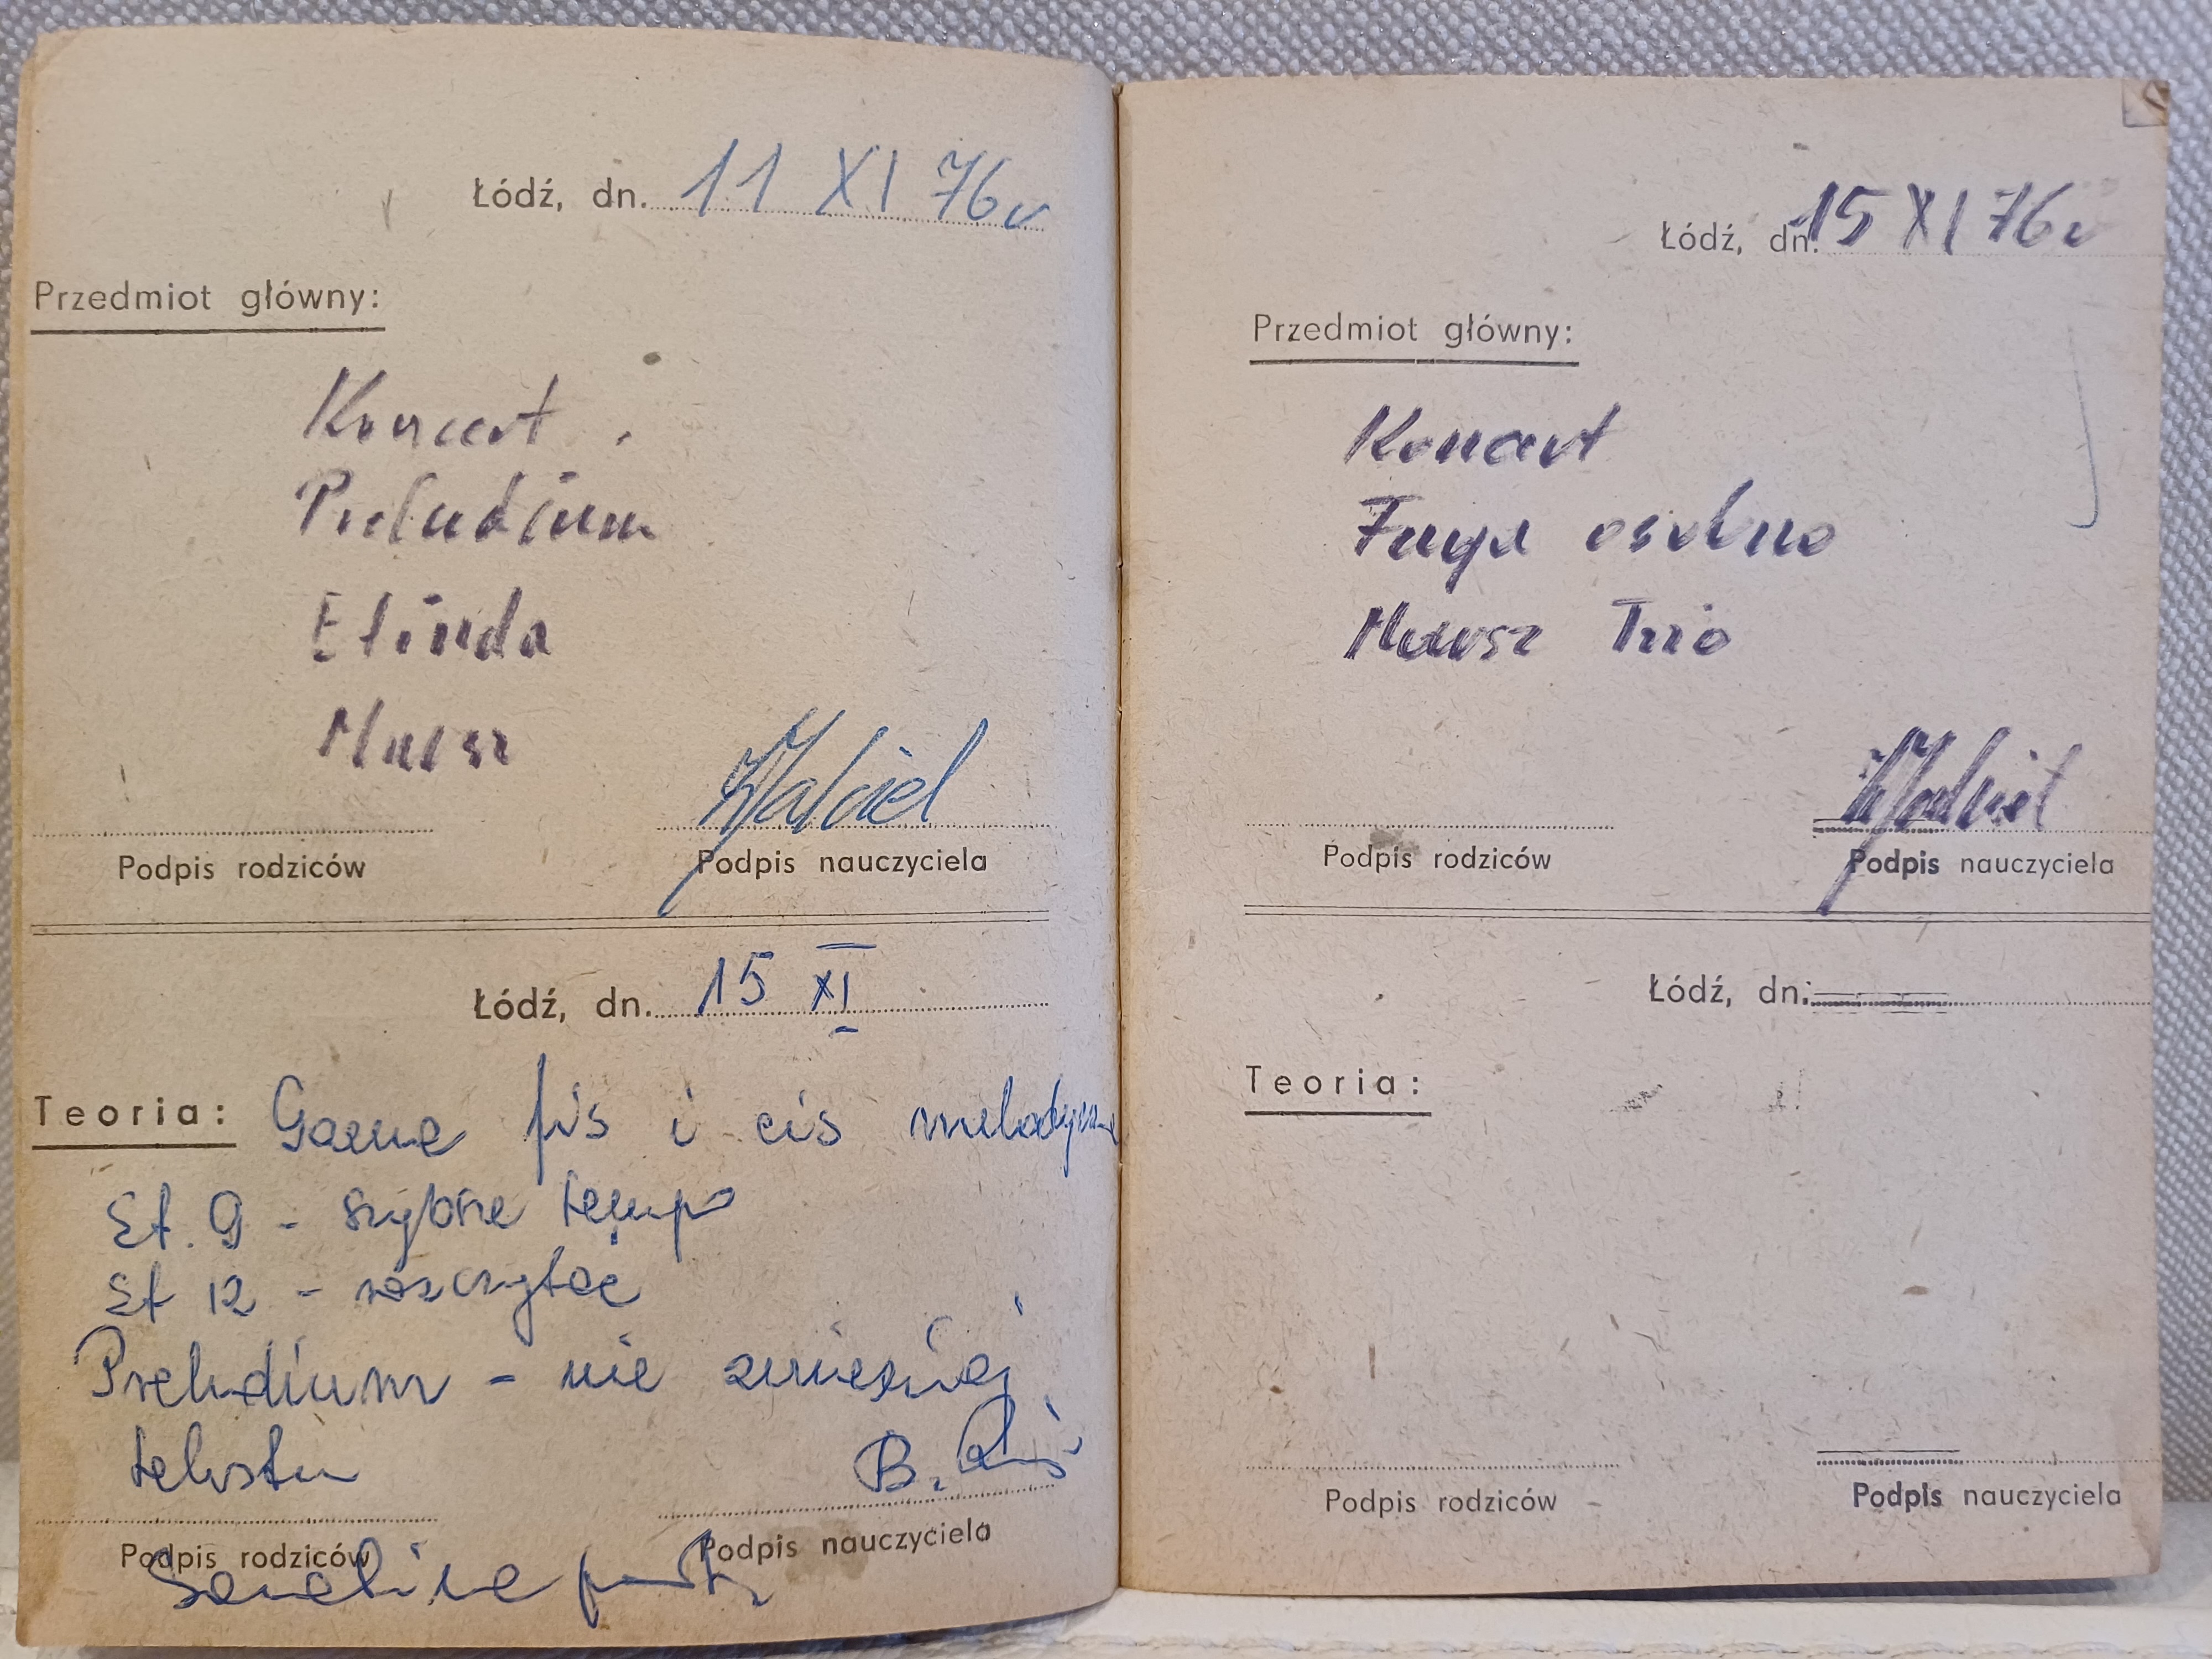 Łódź, dn. 11 XI 76 r
Przedmiot główny:
Koncert.
Preludium
Etiuda
Marsz
Podpis rodziców Podpis nauczyciela
Łódź, dn. 15 XI
Teoria: Gama fis i cis melodyczna
Et. 9 - szybsze tempo
Et 12 - rozczytać
Preludium - nie zmieniaj
tekstu B.
Podpis rodziców Podpis nauczyciela
Łódź, dn. 15 XI 76 r
Przedmiot główny:
Koncert
Fuga osobno
Marsz Trio
Podpis rodziców Podpis nauczyciela
Łódź, dn.
Teoria:
Podpis rodziców Podpis nauczyciela